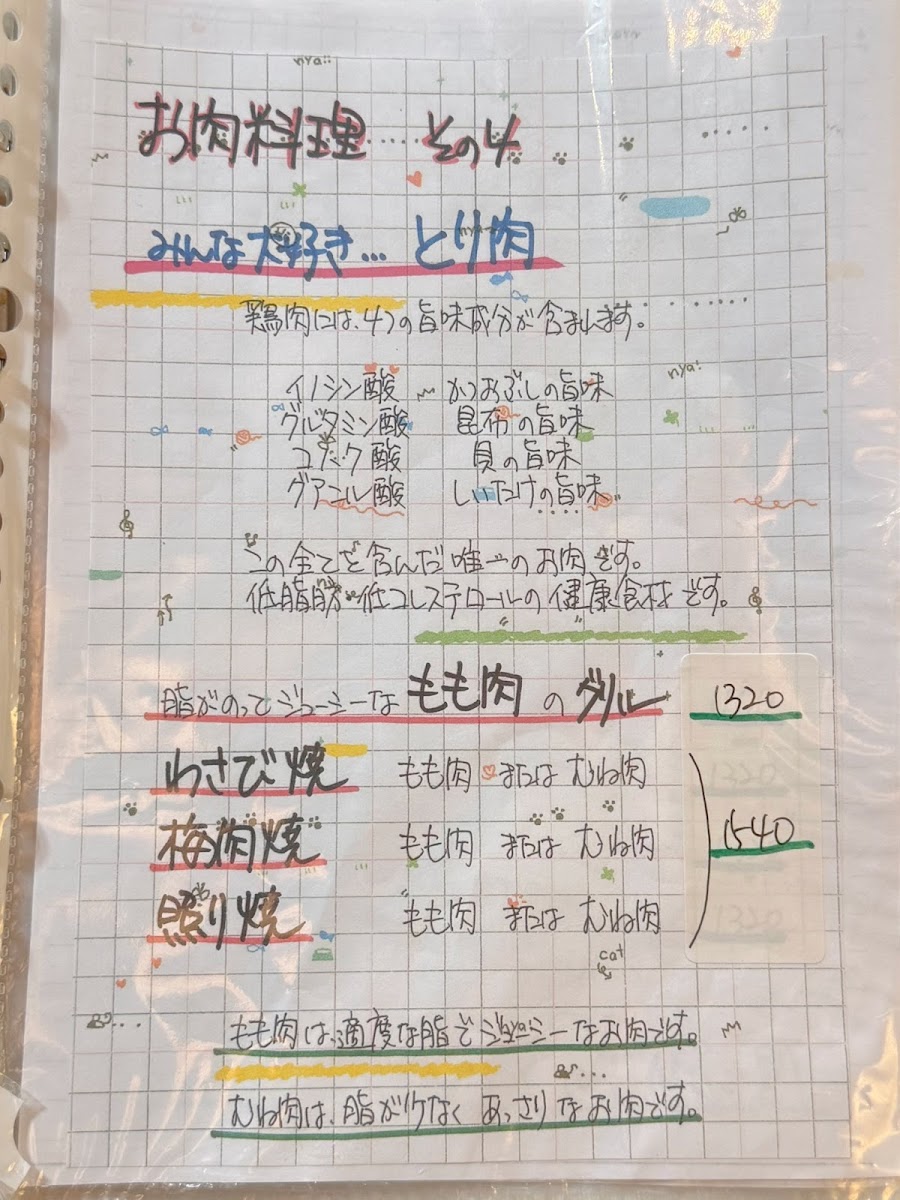 nya::
お肉料理‥‥‥その4
みんな大好き…とり肉
鶏肉には、4つの旨味成分が含まれます。
イノシン酸 かつおぶしの旨味
nya::
グルタミン酸 昆布の旨味
コハク酸 貝の旨味
グアニル酸 しいたけの旨味
この全てを含んだ唯一のお肉です。
低脂肪・低コレステロールの健康食材です。
脂がのってジューシーなもも肉のグリル 1320
わさび焼 もも肉 または むね肉
梅肉焼 もも肉 または むね肉 1540
照り焼 もも肉 または むね肉
cat
もも肉は、適度な脂でジューシーなお肉です。
むね肉は、脂が少なくあっさりなお肉です。